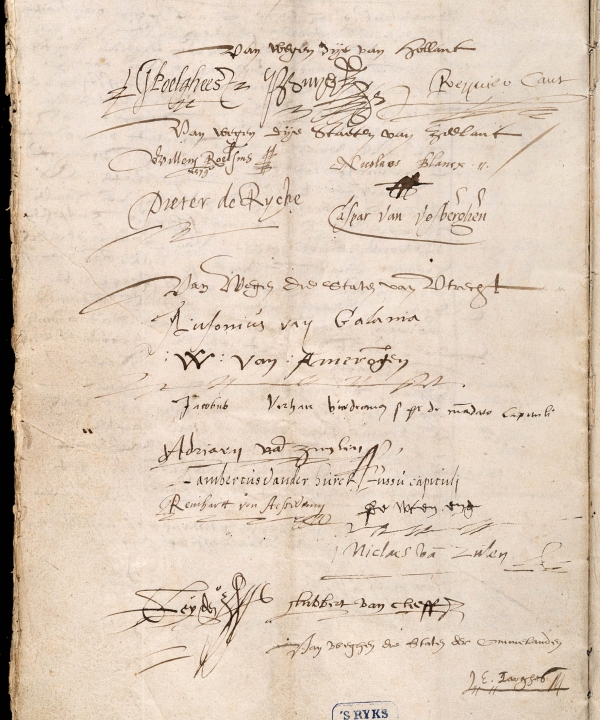 Van wegen dye van Hollant
G Poelghees Reynier Cant
Van wegen dye Staeten van Zeelant
Willem Roelsius Nicolaes Blancx
Pieter de Rycke Caspar van vosberghen
Van Wegen die Staten van Utrecht
Ausonius van Galama
W: van: Amerongen
Jacobus Verhaer de mandato Capituli
Adriaen van Zuylen
Lambertus vander burck Jussu capituli
Reinhart von
Niclaes van Zulen
Lubbert van cleeff
Van weghen die Staten der Ommelanden
E. Jarghes
'S RYKS